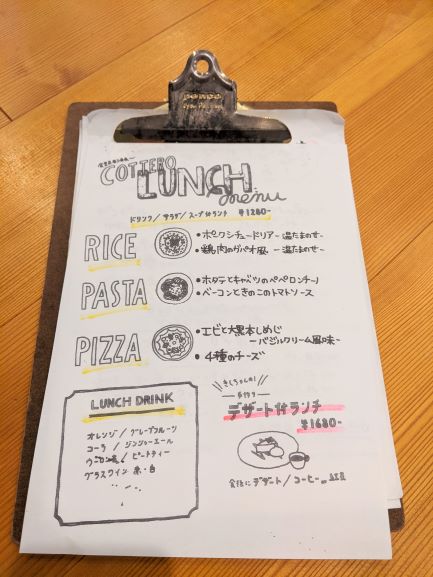 COTTERO
LUNCH
menu
ドリンク/サラダ/スープ付ランチ ¥1280-
RICE
・ポークシチュードリア -温たまのせ-
・鶏肉のガパオ風 -温たまのせ-
PASTA
・ホタテとキャベツのペペロンチーノ
・ベーコンときのこのトマトソース
PIZZA
・エビと大黒本しめじ
-バジルクリーム風味-
・4種のチーズ
LUNCH DRINK
オレンジ/グレープフルーツ
コーラ/ジンジャーエール
ウーロン茶/ピーチティー
グラスワイン 赤・白
手作り
デザート付ランチ
¥1680-
食後にデザート/コーヒー